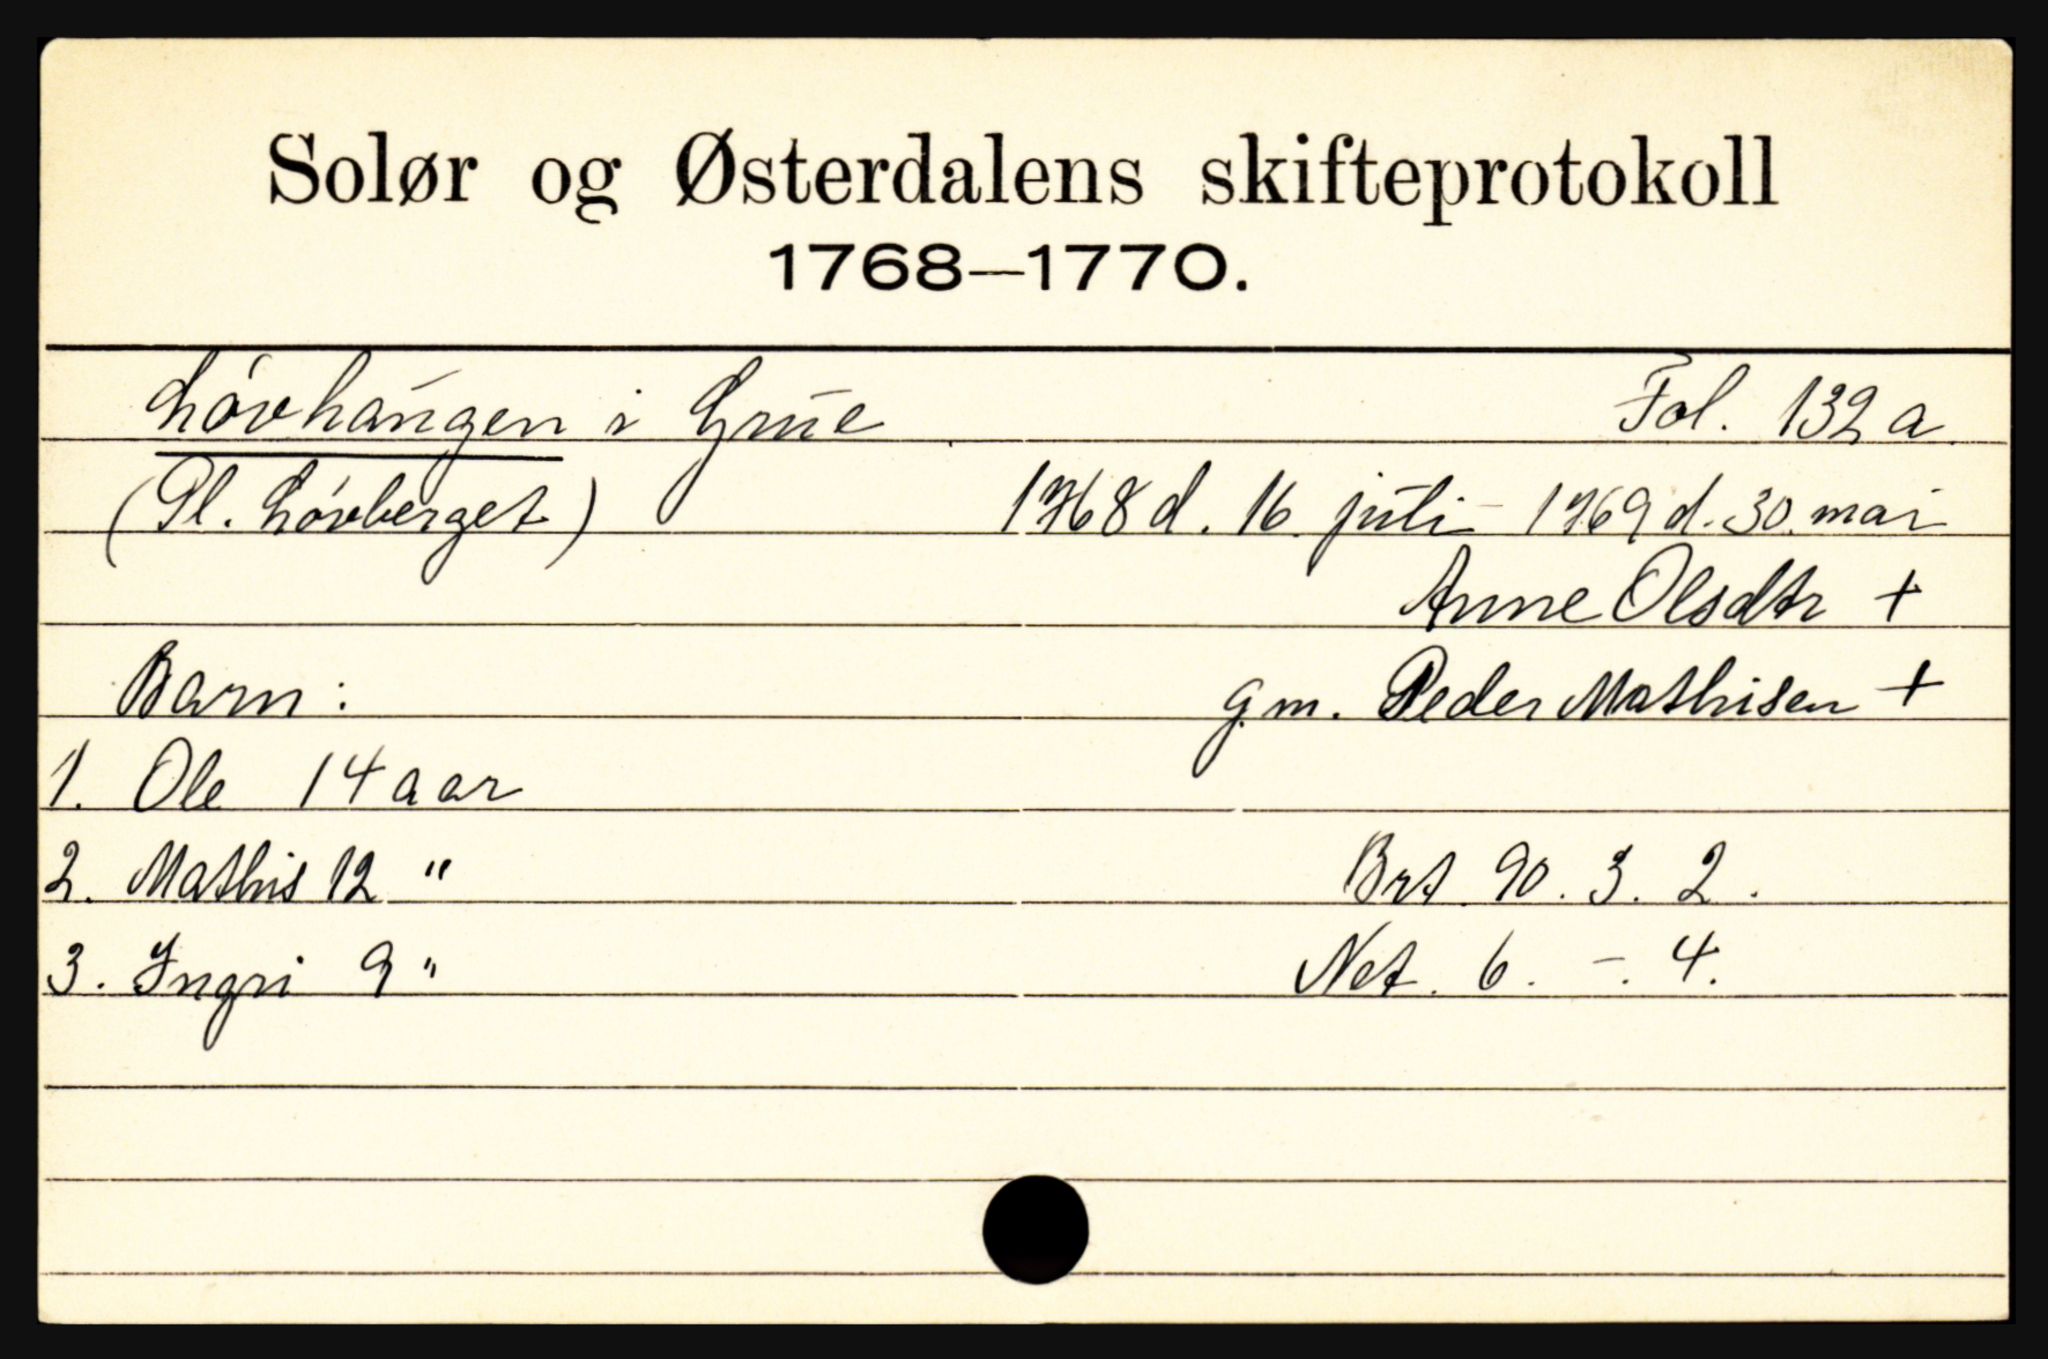 Solør og Østerdalens skifteprotokoll
1768—1770.
Lövhaugen i Grue Fol. 132 a.
(Pl. Lövberget) 1768 d. 16. juli - 1769 d. 30. mai
Anne Olsdtr +
Barn: g.m. Peder Mathisen +
1. Ole 14 aar
2. Mathis 12 " Brt. 90. 3. 2.
3. Ingri 9 " Net. 6. -. 4.